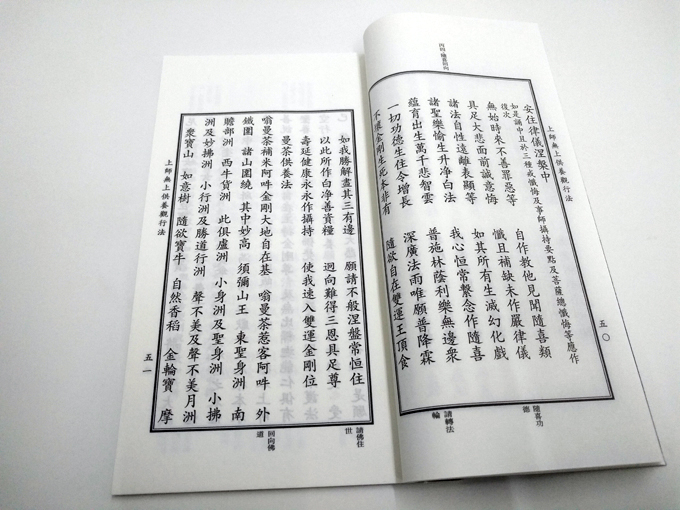 上師無上供養觀行法
五〇
安住律儀涅槃中
如是誦中且於三種戒懺悔及事師攝持要點及菩薩總懺悔等應作
後次
無始時來不善罪惡等　自作教他見聞隨喜類
具足大悲面前誠意悔　懺且補缺未作嚴律儀
諸法自性遠離表顯等　如其所有生滅幻化戲
諸聖樂愉生升淨白法　我心恒常繫念作隨喜
隨喜功德
蘊育出生萬千悲智雲　普施林蔭利樂無邊眾
一切功德生住令增長　深廣法雨唯願普降霖
請轉法輪
不壞金剛生死本非有　隨欲自在雙運王頂食
如我勝解盡其三有邊　願請不般涅盤常恒住
請佛住世
以此所作白淨善資糧　迴向難得三恩具足尊
壽延健康永永作攝持　使我速入雙運金剛位
回向佛道
曼茶供養法
嗡曼茶補米阿吽金剛大地自在基　嗡曼茶惹客阿吽　外
鐵圍　諸山圍繞　其中妙高　須彌山王　東聖身洲　南
贍部洲　西牛貨洲　北俱盧洲　小身洲及聖身洲　小拂
洲及妙拂洲　小行洲及勝道行洲　聲不美及聲不美月洲
眾寶山　如意樹　隨欲寶牛　自然香稻　金輪寶　摩
上師無上供養觀行法
五一